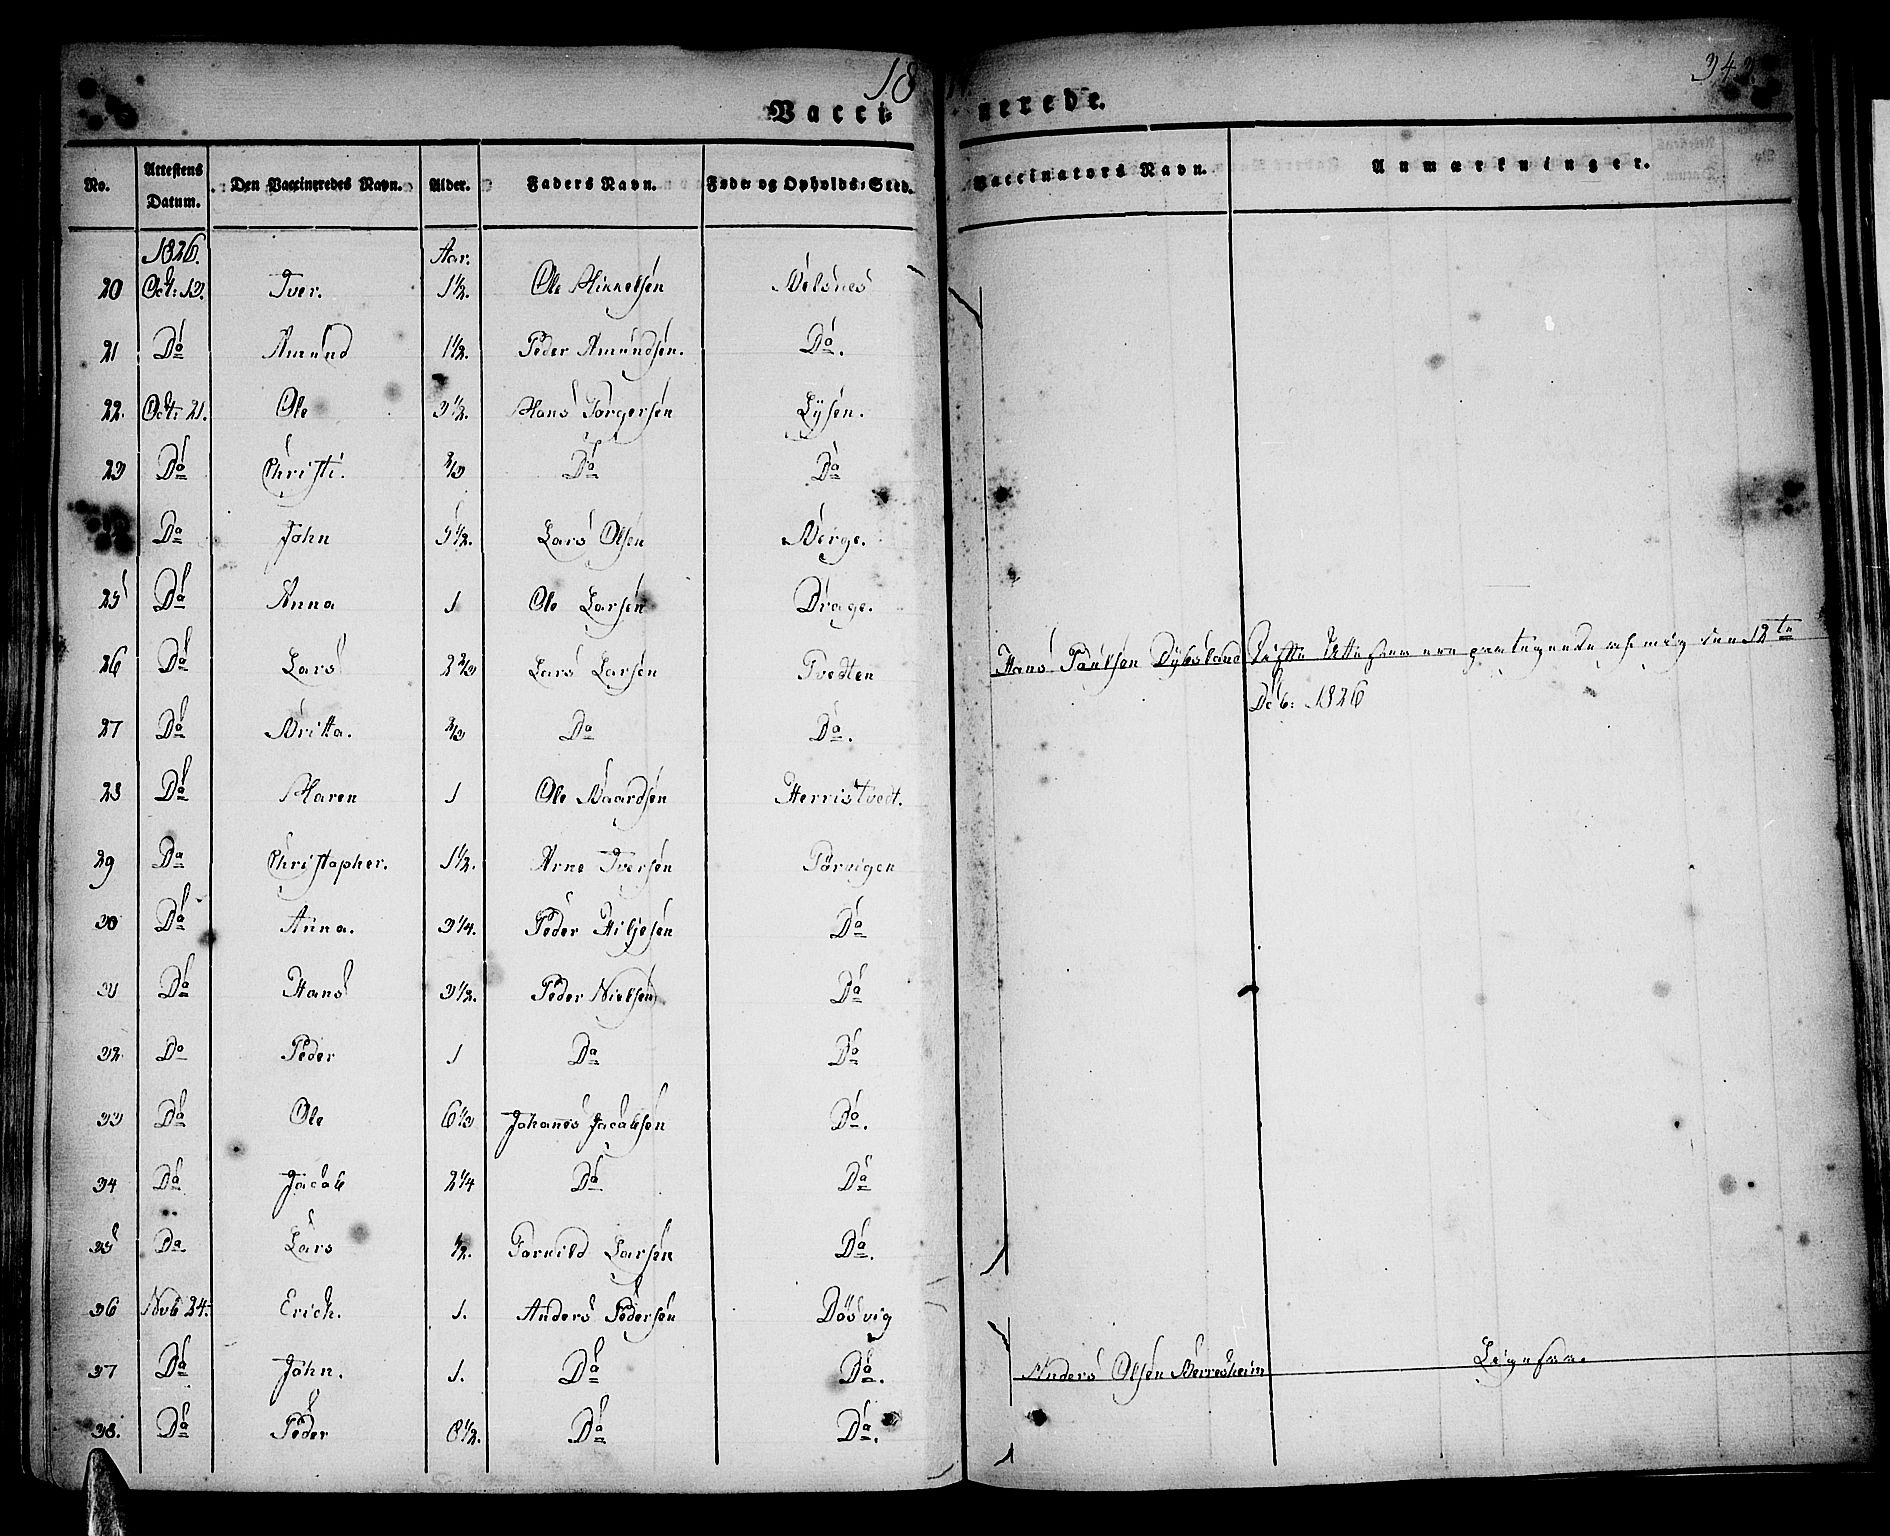 18
343
Vaccinerede.
No. Attestens Datum. Den Vaccineredes Navn. Alder. Faders Navn. Føde- og Opholds-Sted. Vaccinators Navn. Anmærkninger.
1826. Aar.
20 Oct: 13. Iver. 1½. Ole Mikkelsen
21 Do Amund 1½. Peder Amundsen. Do.
22. Oct: 21. Ole 3½. Hans Torgersen Lysen.
23 Do Christi. 2/3 Do Do
Do John 5½. Lars Olsen Berge.
25 Do Anna 1 Ole Larsen Drage.
26 Do Lars 2 2/3 Lars Larsen Tvedten Hans Paulsen Dyksland Disse Attester ere paategnede af mig den 12te
Deb: 1826
27 Do Britta. 2/3 Do Do.
28 Do Maren 1 Ole Baardsen Herristvedt.
29 Do Christopher. 1½. Arne Iversen Tørvigen
30 Do Anna. 3¼. Peder Hiljesen Do
31 Do Hans 3½. Peder Nielsen Do
32. Do Peder 1 Do Do
33 Do Ole 6 1/3 Johanes Jacobsen Do.
34 Do Jacob 2¼ Do Do
35 Do Lars ½. Torkild Larsen Do.
36 Novb 24. Erich. 1. Anders Pedersen Døsvig
37 Do John. 1. Do Do. Anders Olsen Berresheim Ligesaa.
38. Do Peder 8½. Do Do.